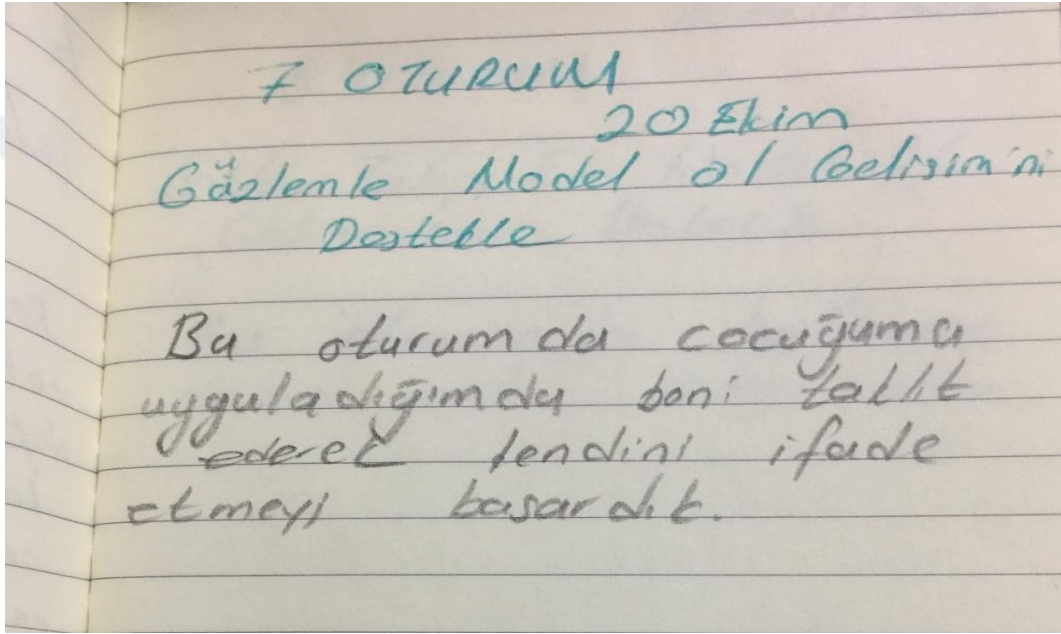 7 OTURUM
20 Ekim
Gözlemle Model ol Gelişim'ni
Destekle
Bu oturumda çocuğuma
uyguladığımda beni taklit
ederek kendini ifade
etmeyi basardık.